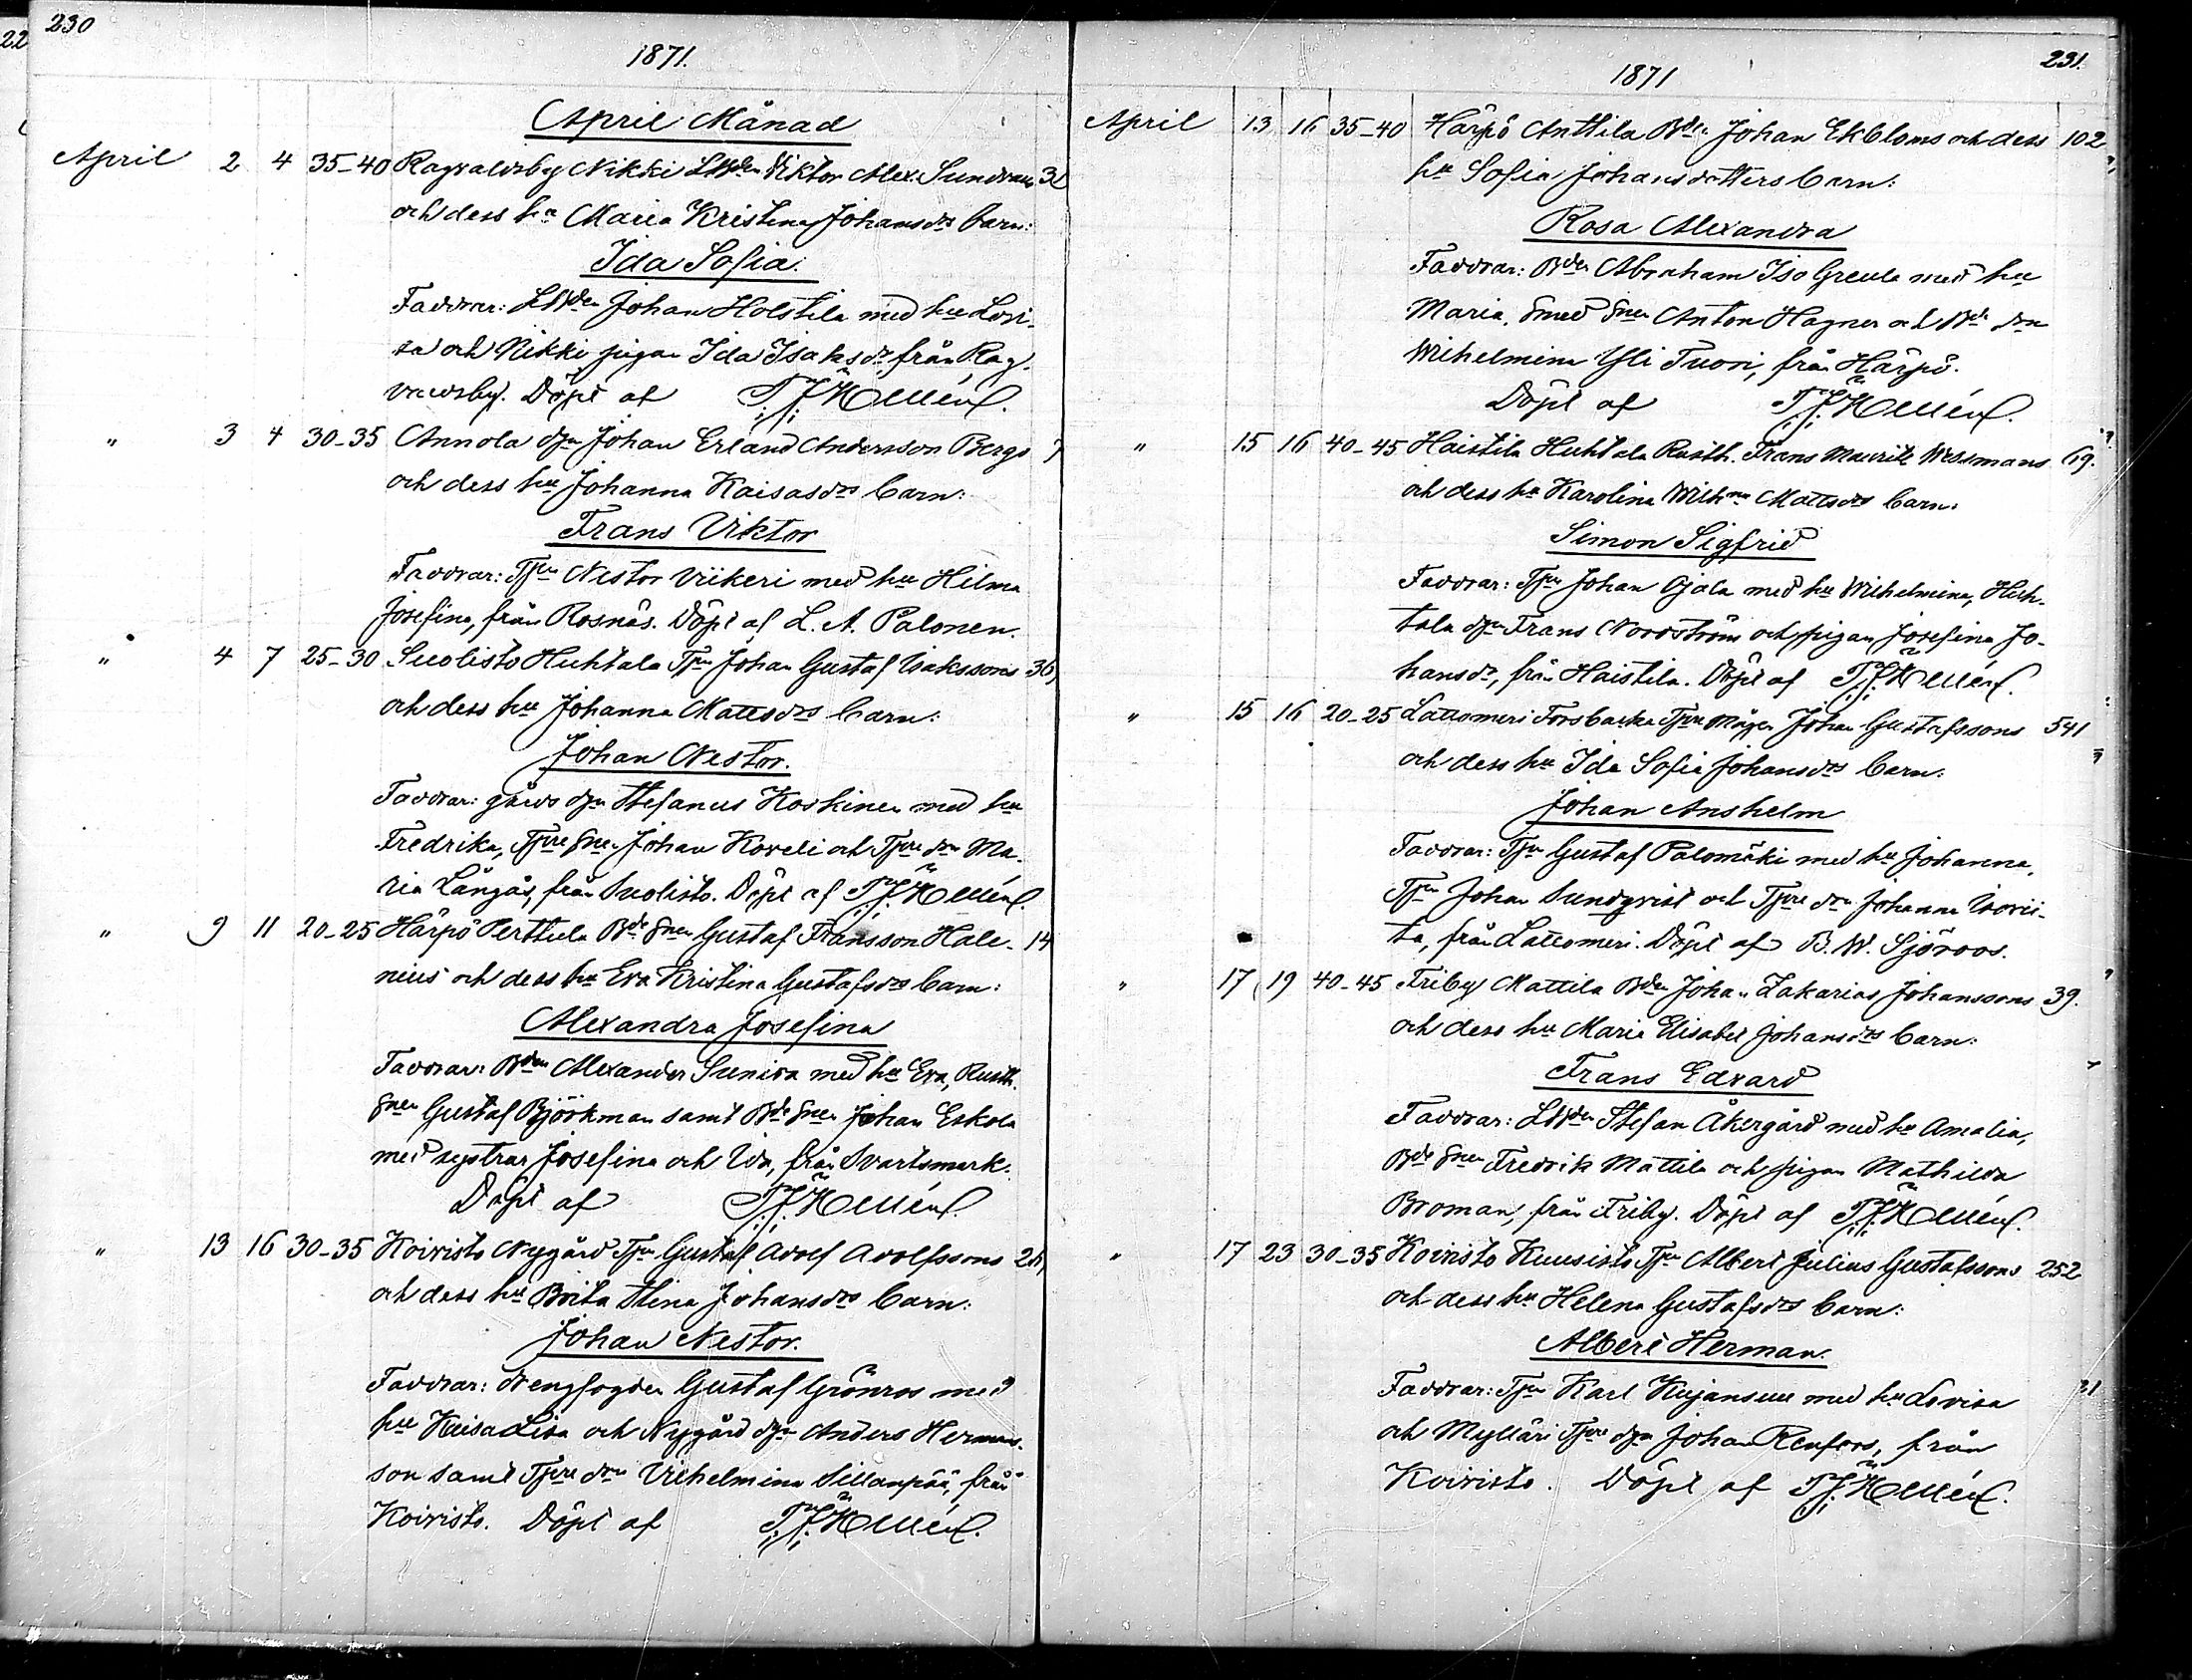 230
1871.
April Månad
April 2 4 35-40 Ragvaldsby Nikki Viktor Alex. Sundvans
och dess hu Maria Kristina Johansdrs barn:
Ida Sofia.
Faddrar: Johan Holstila med hu Lovi-
sa och Nikki pigan Ida Isaksdr, från Rag-
valdsby. Döpt af
" 3 4 30-35 Annola Johan Erland Andersson Bergs
och dess hu Johanna Kaisasdrs barn:
Frans Viktor
Faddrar: Tpn Nestor Viikeri med hu Hilma
Josefina, från Rosnäs. Döpt af L. A. Palonen.
" 4 7 25-30 Suolisto Huhtala Tpn Johan Gustaf Isakssons
och dess hu Johanna Mattsdrs barn:
Johan Nestor.
Faddrar: gårds Stefanus Koskinen med hu
Fredrika, Johan Koveli och Ma-
ria Långås, från Suolisto. Döpt af
" 9 11 20-25 Härpö Perttula Bde Gustaf Fransson Hale- 14
nius och dess hu Eva Kristina Gustafsdrs barn:
Alexandra Josefina
Faddrar: Bden Alexander Suniva med hu Eva, Rusth.
Gustaf Björkman samt Johan Eskola
med systrar Josefina och Ida, från Svartsmark.
Döpt af
" 13 16 30-35 Koivisto Nygård Tpn Gustaf Adolf Adolfssons
och dess hu Brita Stina Johansdrs barn:
Johan Nestor.
Faddrar: Gustaf Grönros med
hu Kaisa Lisa och Nygård Anders Hermans-
son samt Vilhelmina Sillanpää, från
Koivisto. Döpt af
231.
1871
April 13 16 35-40 Härpö Anttila Bde Johan Ekbloms och dess 102
hu Sofia Johansdotters barn:
Rosa Alexandra
Faddrar: Bden Abraham Iso Greula med hu
Maria, Anton Hagner och
Wilhelmina Yli Tuori, från Härpö.
Döpt af
" 15 16 40-45 Haistila Huhtala Rusth. Frans Maurits Wessmans 69.
och dess hu Karolina Wilhna Mattsdrs barn:
Simon Sigfrid
Faddrar: Tpn Johan Ojala med hu Wilhelmina, Huh-
tala Frans Nordström och pigan Josefina Jo-
hansdr, från Haistila. Döpt af
" 15 16 20-25 Lattomeri Forsbacka Mågen Johan Gustafssons 541
och dess hu Ida Sofia Johansdrs barn:
Johan Anshelm
Faddrar: Tpn Gustaf Palomäki med hu Johanna,
Tpn Johan Sundqvist och Johanna
från Lattomeri. Döpt af B. W. Sjöroos.
" 17 19 40-45 Friby Mattila Bden Johan Zakarias Johanssons 39.
och dess hu Maria Elisabet Johansdrs barn:
Frans Edvard
Faddrar: Stefan Åkergård med hu Amalia,
Fredrik Mattila och pigan Mathilda
Broman, från Friby. Döpt af
" 17 23 30-35 Koivisto Kuusisto Tpn Albert Julius Gustafssons 252
och dess hu Helena Gustafsdrs barn:
Albert Herman.
Faddrar: Tpn Karl Kujansuu med hu Lovisa
och Mylläri Johan Renfors, från
Koivisto. Döpt af